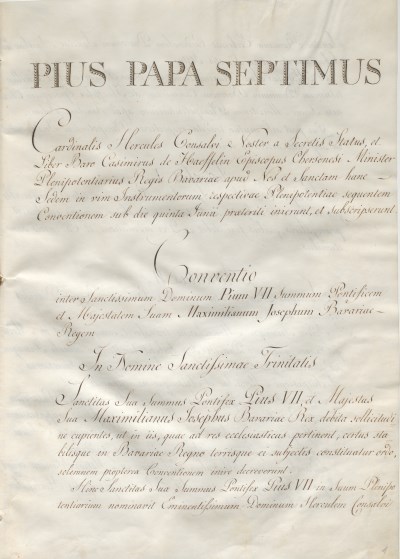 PIUS PAPA SEPTIMUS
Cardinalis Hercules Consalvi Noster a Secretis Status, et
Liber Baro Casimirus de Haeffelin Episcopus Chersonesi Minister
Plenipotentiarius Regis Bavariae apud Nos et Sanctam hanc
Sedem in vim Instrumentorum respectivae Plenipotentiae sequentem
Conventionem sub die quinta Junii praeteriti inierunt, et subscripserunt
Conventio
inter Sanctissimum Dominum Pium VII Summum Pontificem
et Majestatem Suam Maximilianum Josephum Bavariae
Regem
In Nomine Sanctissimae Trinitatis
Sanctitas Sua Summus Pontifex Pius VII, et Majestas
Sua Maximilianus Josephus Bavariae Rex debita sollicitudi
ne cupientes, ut in iis, quae ad res ecclesiasticas pertinent, certus sta
bilisque in Bavariae Regno terrisque ei subjectis constituatur ordo,
solemnem propterea Conventionem inire decreverunt.
Hinc Sanctitas Sua Summus Pontifex Pius VII in Suum Plenipo
tentiarium nominavit Eminentissimum Dominum Herculem Consalvi